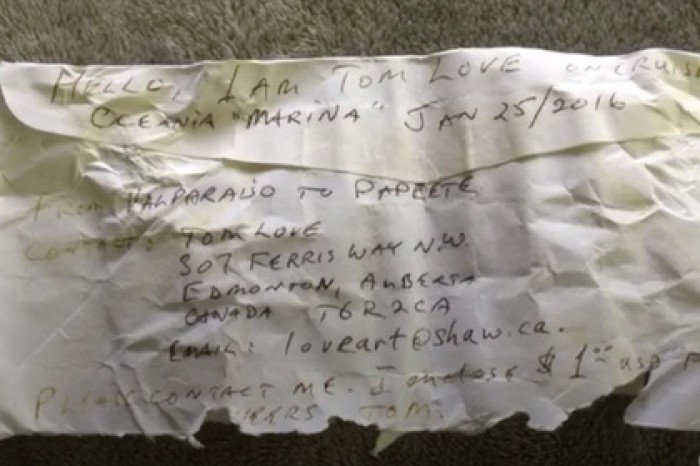 HELLO, I AM TOM LOVE ON CRUISE
OCEANIA "MARINA" JAN 25/2016
FROM VALPARAISO TO PAPEETE
CONTACT: TOM LOVE
307 FERRIS WAY N.W.
EDMONTON, ALBERTA
CANADA T6R2CA
EMAIL: loveart@shaw.ca.
PLEASE CONTACT ME. I enclose $1.00 USD F
TOM.